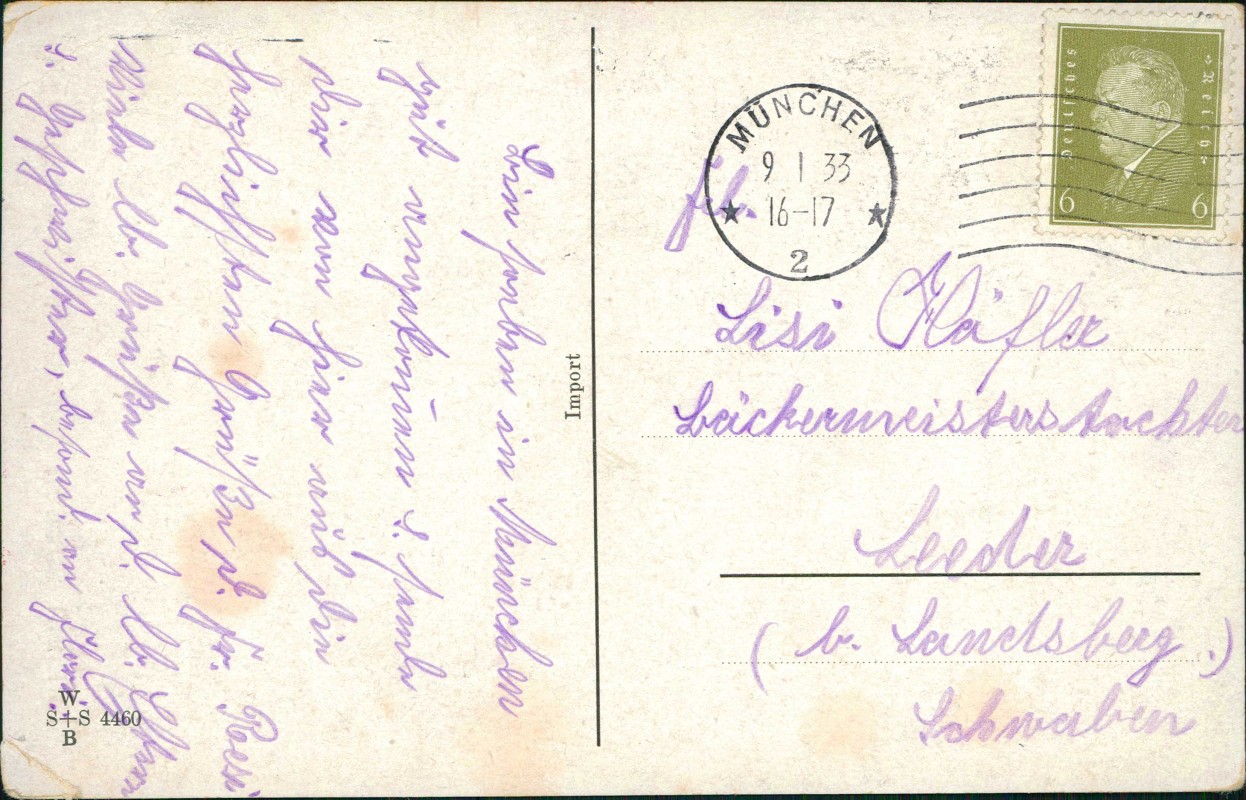 Bin soeben in München
gut angekommen u. sende
dir von hier aus die
herzlichsten Grüße d. Fr. Resi
Viele lb. Grüße an d. lb. Eltern
u. Geschwister, besond. an
Import
W
S+S 4460
B
MÜNCHEN
9 1 33
16-17
2
Deutsches Reich
6 6
Frl.
Lisi Häfler
Bäckermeisterstochter
Leeder
(b. Landsberg.)
Schwaben